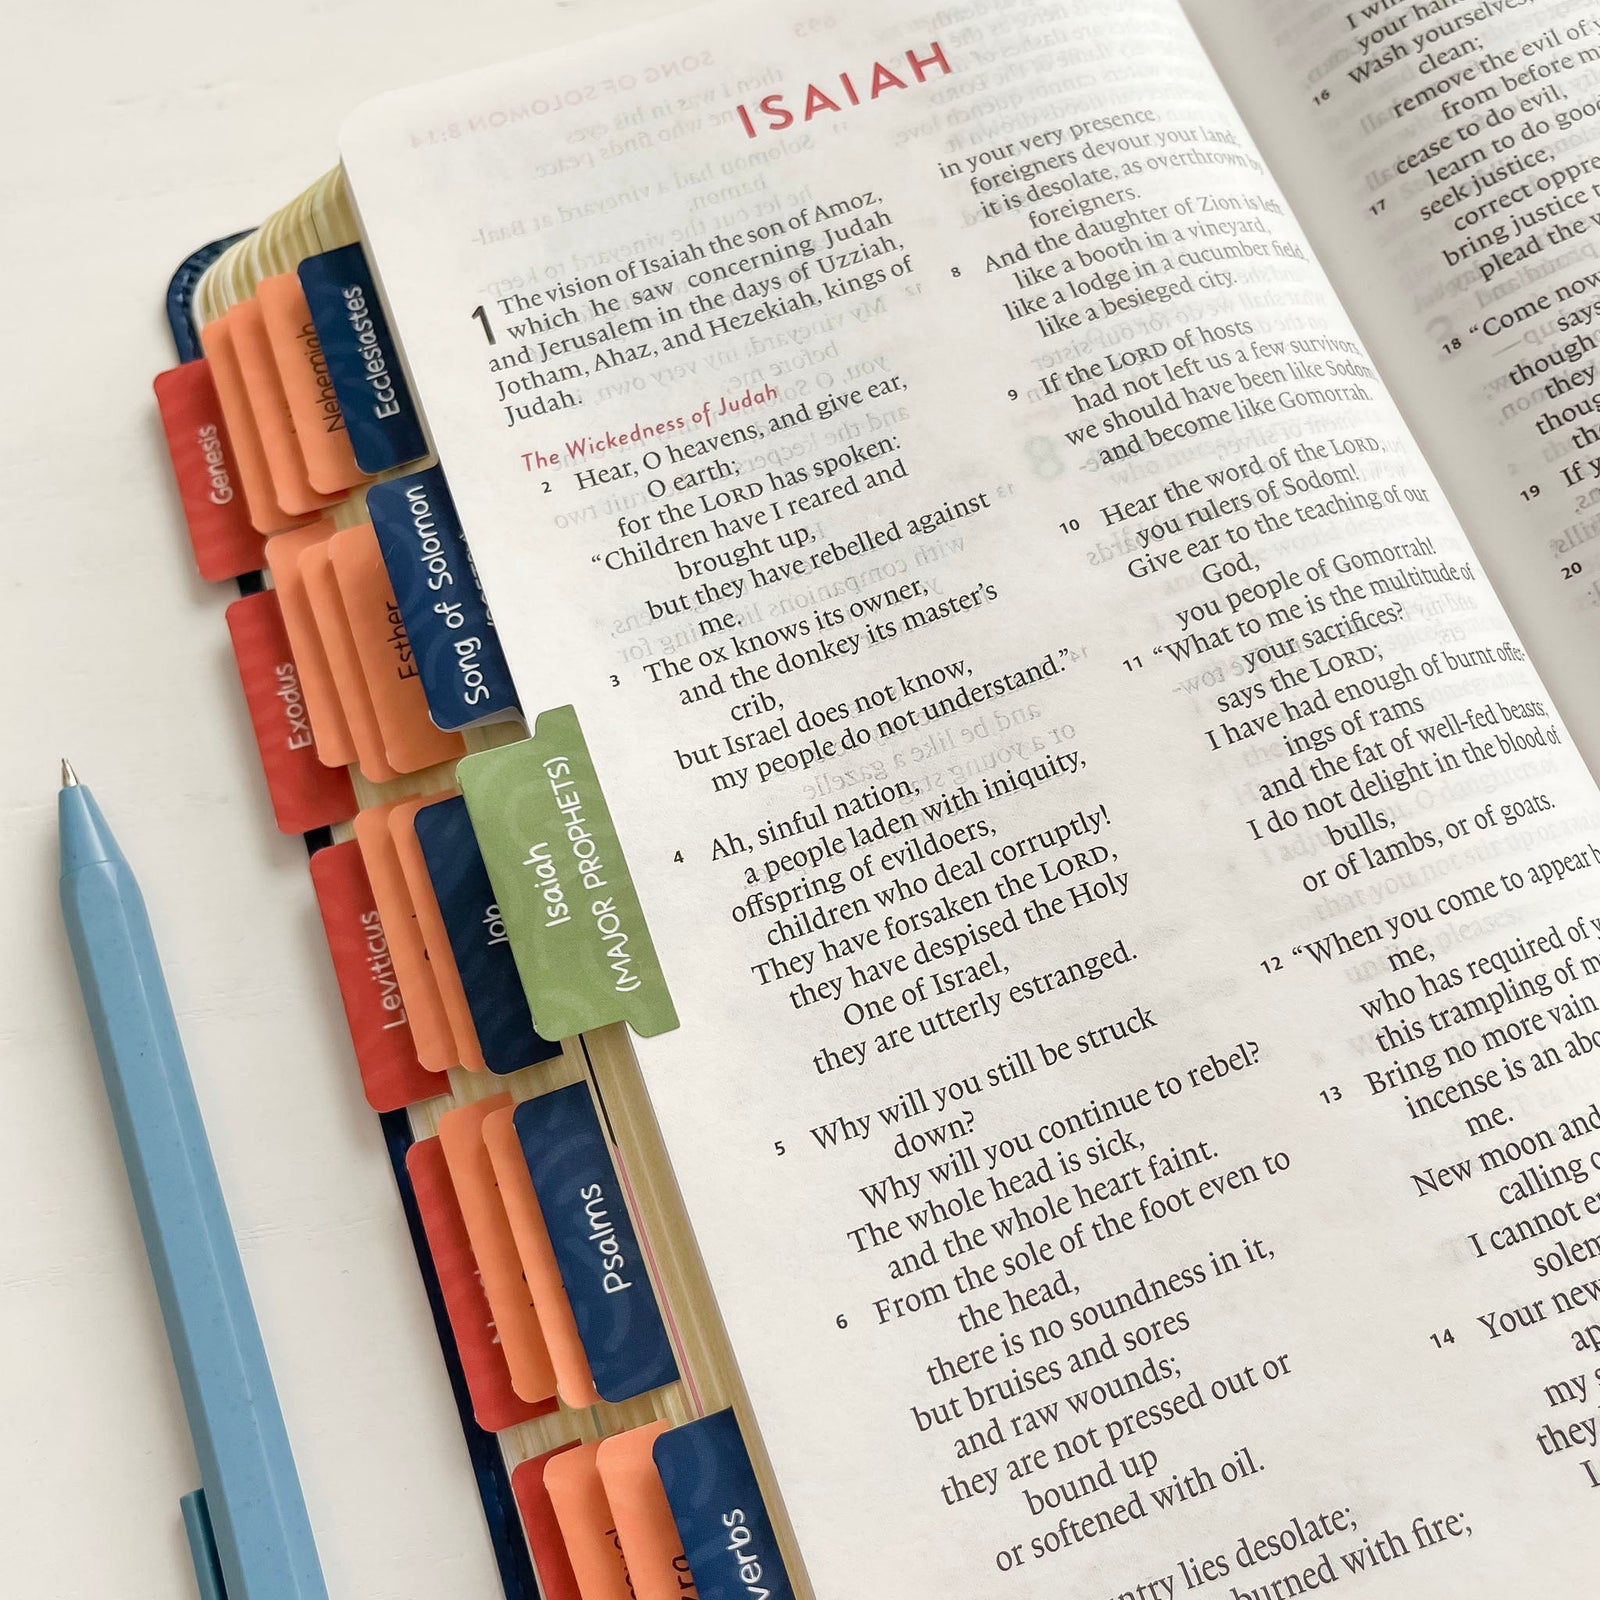 ISAIAH
1 The vision of Isaiah the son of Amoz,
which he saw concerning Judah
and Jerusalem in the days of Uzziah,
Jotham, Ahaz, and Hezekiah, kings of
Judah.
The Wickedness of Judah
2 Hear, O heavens, and give ear,
O earth;
for the LORD has spoken:
“Children have I reared and
brought up,
but they have rebelled against
me.
3 The ox knows its owner,
and the donkey its master’s
crib,
but Israel does not know,
my people do not understand.”
4 Ah, sinful nation,
a people laden with iniquity,
offspring of evildoers,
children who deal corruptly!
They have forsaken the LORD,
they have despised the Holy
One of Israel,
they are utterly estranged.
5 Why will you still be struck
down?
Why will you continue to rebel?
The whole head is sick,
and the whole heart faint.
6 From the sole of the foot even to
the head,
there is no soundness in it,
but bruises and sores
and raw wounds;
they are not pressed out or
bound up
or softened with oil.
lies desolate;
burned with fire;
in your very presence
foreigners devour your land;
it is desolate, as overthrown by
foreigners.
8 And the daughter of Zion is left
like a booth in a vineyard,
like a lodge in a cucumber field,
like a besieged city.
9 If the LORD of hosts
had not left us a few survivors,
we should have been like Sodom,
and become like Gomorrah.
10 Hear the word of the LORD,
you rulers of Sodom!
Give ear to the teaching of our
God,
you people of Gomorrah!
11 “What to me is the multitude of
your sacrifices?
says the LORD;
I have had enough of burnt offer-
ings of rams
and the fat of well-fed beasts;
I do not delight in the blood of
bulls,
or of lambs, or of goats.
12 “When you come to appear
me,
who has required of
this trampling of
13 Bring no more vain
incense is an
me.
New moon and
calling
I cannot
14 Your new
my
they
I
your
16 Wash yourselves;
clean;
remove the evil of
from before
cease to do evil,
17 learn to do good
seek justice,
correct
bring justice
plead the
18 “Come now
says
though
they
though
19 If
20
Genesis
Nehemiah
Ecclesiastes
Exodus
Esther
Song of Solomon
Leviticus
Job
Isaiah
(MAJOR PROPHETS)
Psalms